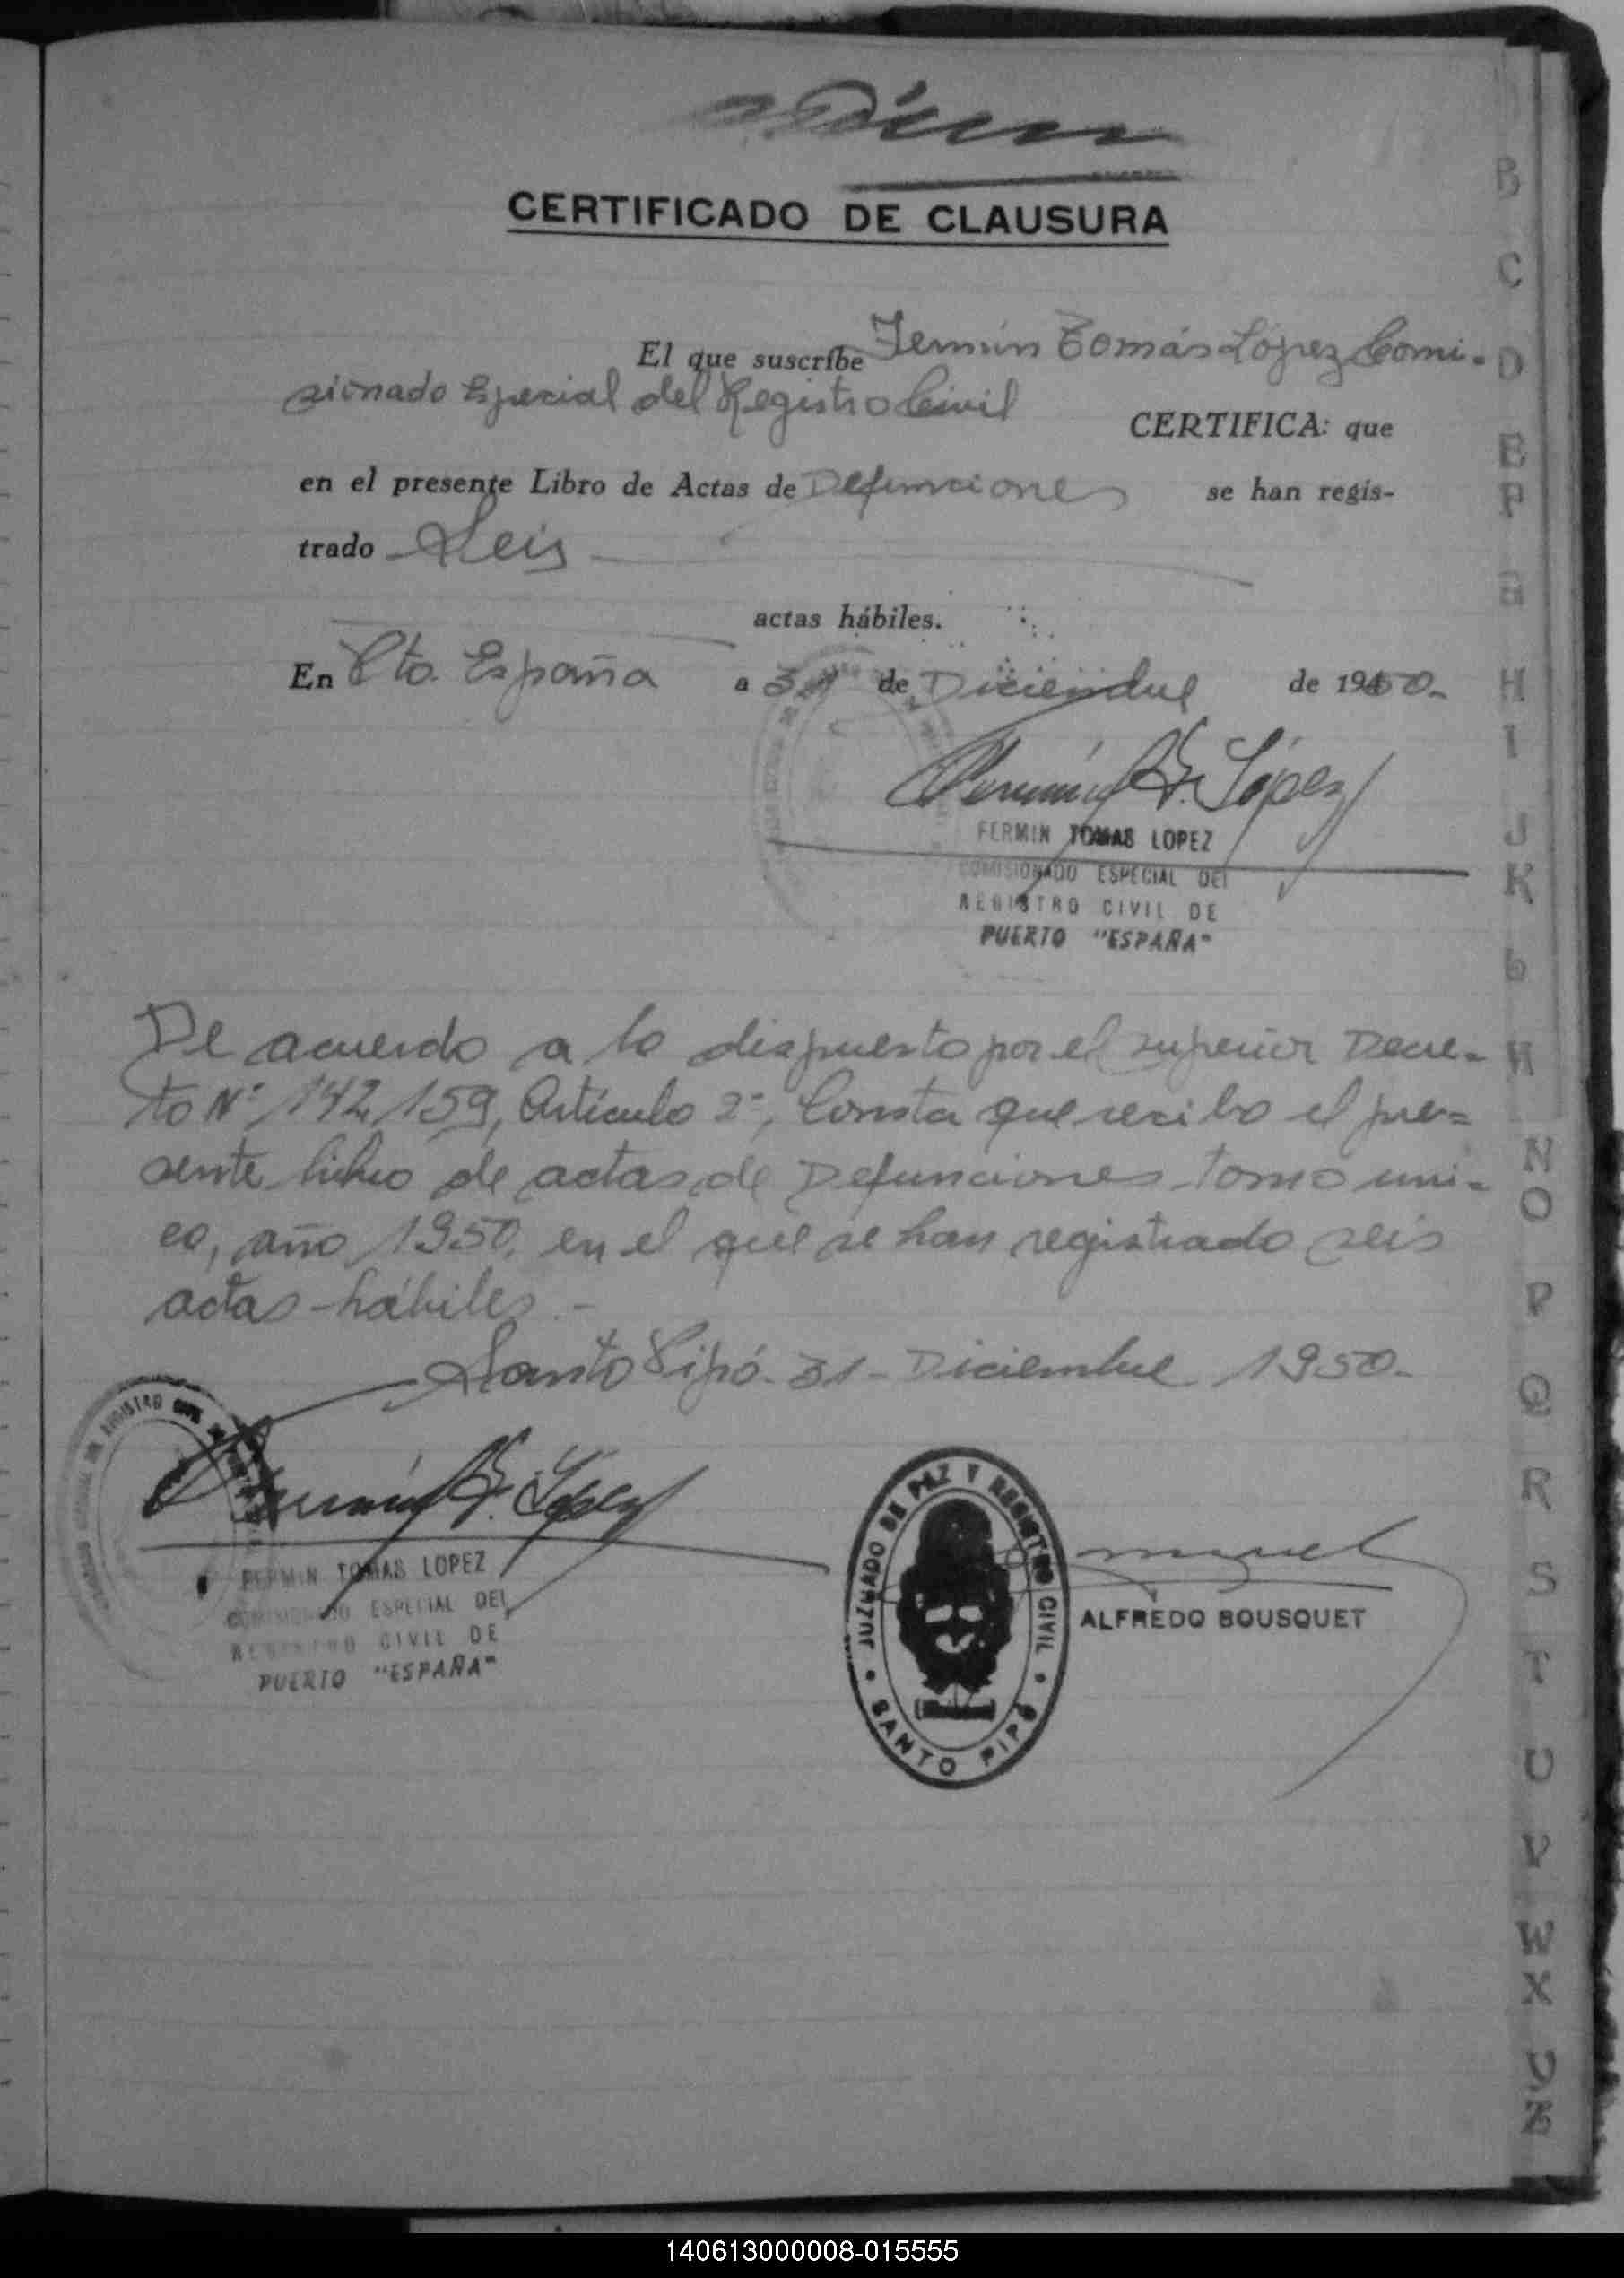 CERTIFICADO DE CLAUSURA
El que suscribe Fermín Tomás López Comi-
sionado Especial del Registro Civil CERTIFICA: que
en el presente Libro de Actas de Defunciones se han regis-
trado Seis
actas hábiles.
En Pto. España a 31 de Diciembre de 1950.-
Fermín T. López
FERMIN TOMAS LOPEZ
COMISIONADO ESPECIAL DEL
REGISTRO CIVIL DE
PUERTO "ESPAÑA"
De acuerdo a lo dispuesto por el superior Decre-
to Nº 142,159, Artículo 2º, Consta que recibo el pre-
sente libro de actas de Defunciones tomo uni-
co, año 1950, en el que se han registrado seis
actas hábiles.-
Santo Pipó. 31 - Diciembre 1950.-
Fermín T. López
FERMIN TOMAS LOPEZ
COMISIONADO ESPECIAL DEL
REGISTRO CIVIL DE
PUERTO "ESPAÑA"
JUZGADO DE PAZ Y REGISTRO CIVIL
SANTO PIPÓ
ALFREDO BOUSQUET
B
C
D
E
F
H
I
J
K
N
O
P
Q
R
S
T
U
V
W
X
Z
140613000008-015555